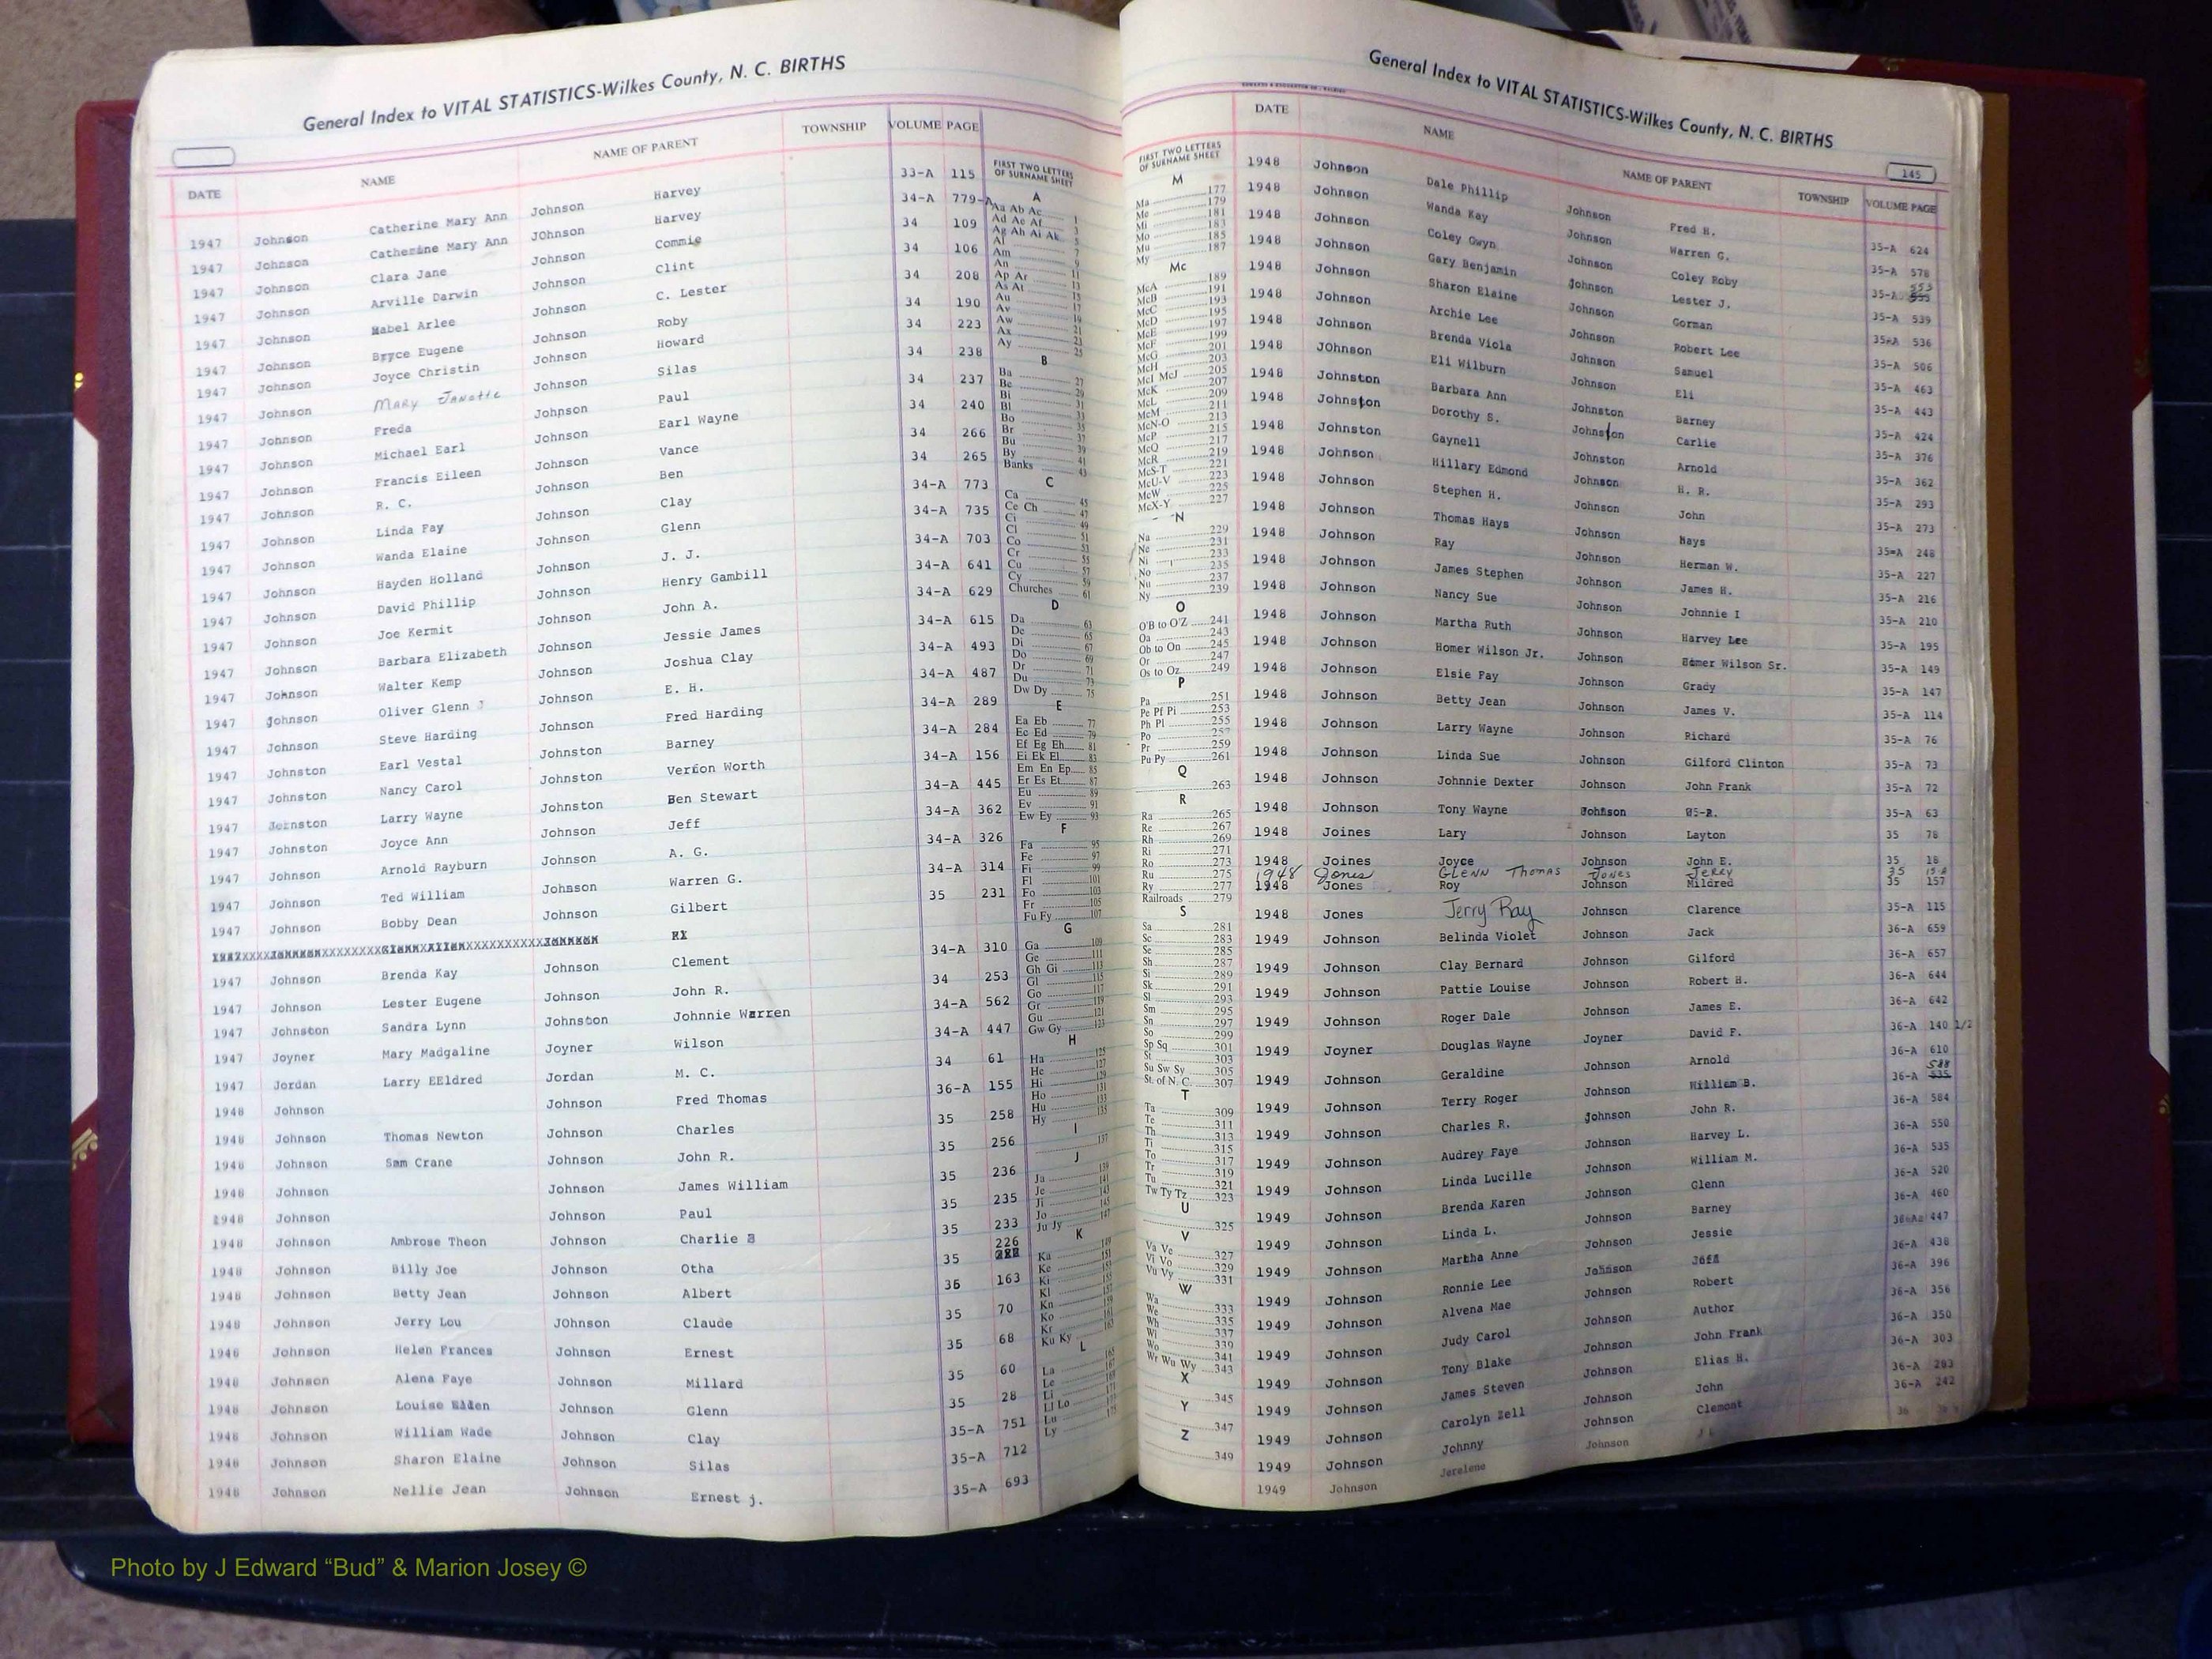 General Index to VITAL STATISTICS-Wilkes County, N. C. BIRTHS
DATE NAME NAME OF PARENT TOWNSHIP VOLUME PAGE
1947 Johnson Catherine Mary Ann Johnson Harvey 33-A 115
1947 Johnson Cathemine Mary Ann JOhnson Harvey 34-A 779-A
1947 Johnson Clara Jane Johnson Commie 34 109
1947 Johnson Arville Darwin Johnson Clint 34 106
1947 Johnson Mabel Arlee Johnson C. Lester 34 208
1947 Johnson Bryce Eugene Johnson Roby 34 190
1947 Johnson Joyce Christin Johnson Howard 34 223
1947 Johnson Mary Janette Johnson Silas 34 238
1947 Johnson Freda Johnson Paul 34 237
1947 Johnson Michael Earl Johnson Earl Wayne 34 240
1947 Johnson Francis Eileen Johnson Vance 34 266
1947 Johnson R. C. Johnson Ben 34 265
1947 Johnson Linda Fay Johnson Clay 34-A 773
1947 Johnson Wanda Elaine Johnson Glenn 34-A 735
1947 Johnson Hayden Holland Johnson J. J. 34-A 703
1947 Johnson David Phillip Johnson Henry Gambill 34-A 641
1947 Johnson Joe Kermit Johnson John A. 34-A 629
1947 Johnson Barbara Elizabeth Johnson Jessie James 34-A 615
1947 Johnson Walter Kemp Johnson Joshua Clay 34-A 493
1947 Johnson Oliver Glenn J Johnson E. H. 34-A 487
1947 Johnson Steve Harding Johnson Fred Harding 34-A 289
1947 Johnston Earl Vestal Johnston Barney 34-A 284
1947 Johnston Nancy Carol Johnston Vernon Worth 34-A 156
1947 Johnston Larry Wayne Johnston Ben Stewart 34-A 445
1947 Johnston Joyce Ann Johnson Jeff 34-A 362
1947 Johnson Arnold Rayburn Johnson A. G. 34-A 326
1947 Johnson Ted William Johnson Warren G. 34-A 314
1947 Johnson Bobby Dean Johnson Gilbert 35 231
1947 Johnson Brenda Kay Johnson Clement 34-A 310
1947 Johnson Lester Eugene Johnson John R. 34 253
1947 Johnston Sandra Lynn Johnston Johnnie Warren 34-A 562
1947 Joyner Mary Madgaline Joyner Wilson 34-A 447
1947 Jordan Larry EEldred Jordan M. C. 34 61
1948 Johnson Johnson Fred Thomas 36-A 155
1948 Johnson Thomas Newton Johnson Charles 35 258
1948 Johnson Sam Crane Johnson John R. 35 256
1948 Johnson Johnson James William 35 236
1948 Johnson Johnson Paul 35 235
1948 Johnson Ambrose Theon Johnson Charlie 35 233
1948 Johnson Billy Joe Johnson Otha 35 226
1948 Johnson Betty Jean Johnson Albert 35 163
1948 Johnson Jerry Lou JOhnson Claude 35 70
1948 Johnson Helen Frances Johnson Ernest 35 68
1948 Johnson Alena Faye Johnson Millard 35 60
1948 Johnson Louise Johnson Glenn 35 28
1948 Johnson William Wade Johnson Clay 35-A 751
1948 Johnson Sharon Elaine Johnson Silas 35-A 712
1948 Johnson Nellie Jean Johnson Ernest j. 35-A 693
FIRST TWO LETTERS
OF SURNAME SHEET
A
Aa Ab Ac 1
Ad Ae Af 3
Ag Ah Ai Ak 5
Al 7
Am 9
An 11
Ap Ar 13
As At 15
Au 17
Av 19
Aw 21
Ax 23
Ay 25
B
Ba 27
Be 29
Bi 31
Bl 33
Bo 35
Br 37
Bu 39
By 41
Banks 43
C
Ca 45
Ce Ch 47
Ci 49
Cl 51
Co 53
Cr 55
Cu 57
Cy 59
Churches 61
D
Da 63
De 65
Di 67
Do 69
Dr 71
Du 73
Dw Dy 75
E
Ea Eb 77
Ec Ed 79
Ef Eg Eh 81
Ei Ek El 83
Em En Ep 85
Er Es Et 87
Eu 89
Ev 91
Ew Ey 93
F
Fa 95
Fe 97
Fi 99
Fl 101
Fo 103
Fr 105
Fu Fy 107
G
Ga 109
Ge 111
Gh Gi 113
Gl 115
Go 117
Gr 119
Gu 121
Gw Gy 123
H
Ha 125
He 127
Hi 129
Ho 131
Hu 133
Hy 135
I
137
J
Ja 139
Je 141
Ji 143
Jo 145
Ju Jy 147
K
Ka 149
Ke 151
Ki 153
Kl 155
Kn 157
Ko 159
Kr 161
Ku Ky 163
L
La 165
Le 167
Li 169
Ll Lo 171
Lu 173
Ly 175
General Index to VITAL STATISTICS-Wilkes County, N. C. BIRTHS
145
DATE NAME NAME OF PARENT TOWNSHIP VOLUME PAGE
FIRST TWO LETTERS
OF SURNAME SHEET
M
Ma 177
Me 179
Mi 181
Mo 183
Mu 185
My 187
Mc
McA 189
McB 191
McC 193
McD 195
McE 197
McF 199
McG 201
McH 203
McI McJ 205
McK 207
McL 209
McM 211
McN-O 213
McP 215
McQ 217
McR 219
McS-T 221
McU-V 223
McW 225
McX-Y 227
N
Na 229
Ne 231
Ni 233
No 235
Nu 237
Ny 239
O
O'B to O'Z 241
Oa 243
Ob to On 245
Or 247
Os to Oz 249
P
Pa 251
Pe Pf Pi 253
Ph Pl 255
Po 257
Pr 259
Pu Py 261
Q
263
R
Ra 265
Re 267
Rh 269
Ri 271
Ro 273
Ru 275
Ry 277
Railroads 279
S
Sa 281
Sc 283
Se 285
Sh 287
Si 289
Sk 291
Sl 293
Sm 295
Sn 297
So 299
Sp Sq 301
St 303
Su Sw Sy 305
St. of N. C. 307
T
Ta 309
Te 311
Th 313
Ti 315
To 317
Tr 319
Tu 321
Tw Ty Tz 323
U
325
V
Va Ve 327
Vi Vo 329
Vu Vy 331
W
Wa 333
We 335
Wh 337
Wi 339
Wo 341
Wr Wu Wy 343
X
345
Y
347
Z
349
1948 Johnson Dale Phillip Johnson Fred H. 35-A 624
1948 Johnson Wanda Kay Johnson Warren G. 35-A 578
1948 Johnson Coley Gwyn Johnson Coley Roby 35-A 553
1948 Johnson Gary Benjamin Johnson Lester J. 35-A 539
1948 Johnson Sharon Elaine Johnson Gorman 35=A 536
1948 Johnson Archie Lee Johnson Robert Lee 35-A 506
1948 JOhnson Brenda Viola Johnson Samuel 35-A 463
1948 Johnson Eli Wilburn Johnson Eli 35-A 443
1948 Johnston Barbara Ann Johnston Barney 35-A 424
1948 Johnston Dorothy S. Johnston Carlie 35-A 376
1948 Johnston Gaynell Johnston Arnold 35-A 362
1948 Johnson Hillary Edmond Johnson H. R. 35-A 293
1948 Johnson Stephen H. Johnson John 35-A 273
1948 Johnson Thomas Hays Johnson Hays 35=A 248
1948 Johnson Ray Johnson Herman W. 35-A 227
1948 Johnson James Stephen Johnson James H. 35-A 216
1948 Johnson Nancy Sue Johnson Johnnie I 35-A 210
1948 Johnson Martha Ruth Johnson Harvey Lee 35-A 195
1948 Johnson Homer Wilson Jr. Johnson Homer Wilson Sr. 35-A 149
1948 Johnson Elsie Fay Johnson Grady 35-A 147
1948 Johnson Betty Jean Johnson James V. 35-A 114
1948 Johnson Larry Wayne Johnson Richard 35-A 76
1948 Johnson Linda Sue Johnson Gilford Clinton 35-A 73
1948 Johnson Johnnie Dexter Johnson John Frank 35-A 72
1948 Johnson Tony Wayne Johnson 35-A 63
1948 Joines Lary Johnson Layton 35 78
1948 Joines Joyce Johnson John E. 35 18
1948 Jones Glenn Thomas Jones Jerry 35
1948 Jones Roy Johnson Mildred 35 157
1948 Jones Jerry Ray Johnson Clarence 35-A 115
1949 Johnson Belinda Violet Johnson Jack 36-A 659
1949 Johnson Clay Bernard Johnson Gilford 36-A 657
1949 Johnson Pattie Louise Johnson Robert H. 36-A 644
1949 Johnson Roger Dale Johnson James E. 36-A 642
1949 Joyner Douglas Wayne Joyner David F. 36-A 140 1/2
1949 Johnson Geraldine Johnson Arnold 36-A 610
1949 Johnson Terry Roger Johnson William B. 36-A 588
1949 Johnson Charles R. Johnson John R. 36-A 584
1949 Johnson Audrey Faye Johnson Harvey L. 36-A 550
1949 Johnson Linda Lucille Johnson William M. 36-A 535
1949 Johnson Brenda Karen Johnson Glenn 36-A 520
1949 Johnson Linda L. Johnson Barney 36-A 460
1949 Johnson Martha Anne Johnson Jessie 447
1949 Johnson Ronnie Lee Johnson Jeff 36-A 438
1949 Johnson Alvena Mae Johnson Robert 36-A 396
1949 Johnson Judy Carol Johnson Author 36-A 356
1949 Johnson Tony Blake Johnson John Frank 36-A 350
1949 Johnson James Steven Johnson Elias H. 36-A 303
1949 Johnson Carolyn Zell Johnson John 36-A 283
1949 Johnson Johnny Johnson Clemont 36-A 242
1949 Johnson Jerelene Johnson 36
Photo by J Edward “Bud” & Marion Josey ©